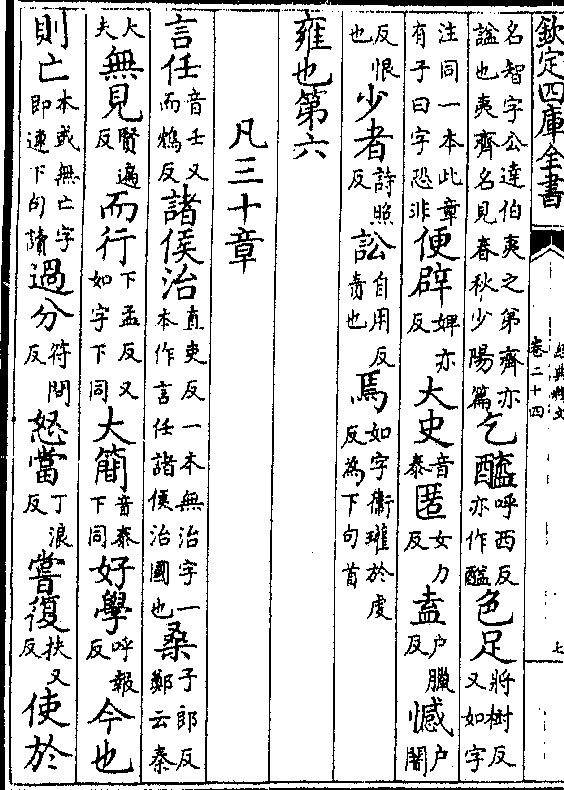 欽定四庫全書
經典釋文
卷二十四
七
名智字公達伯夷之第齊亦諡也夷齊名見春秋少陽篇乞醯呼西反亦作醯色足將樹反又如字
注同一本此章有子曰字恐非便辟婢亦反大史音泰匿女力反盍户臘反憾户闇
反恨也少者詩照反訟自用反責也焉如字衞瓘於虔反為下句首
雍也第六
凡三十章
言任音壬又而鴆反諸侯治直吏反一本無治字一本作言任諸侯治國也桑子郎反鄭云秦
大夫無見賢遍反而行下孟反又如字下同大簡音泰下同好學呼報反今也
則亡本或無亡字即連下句讀過分符問反怒當丁浪反嘗復扶又反使於